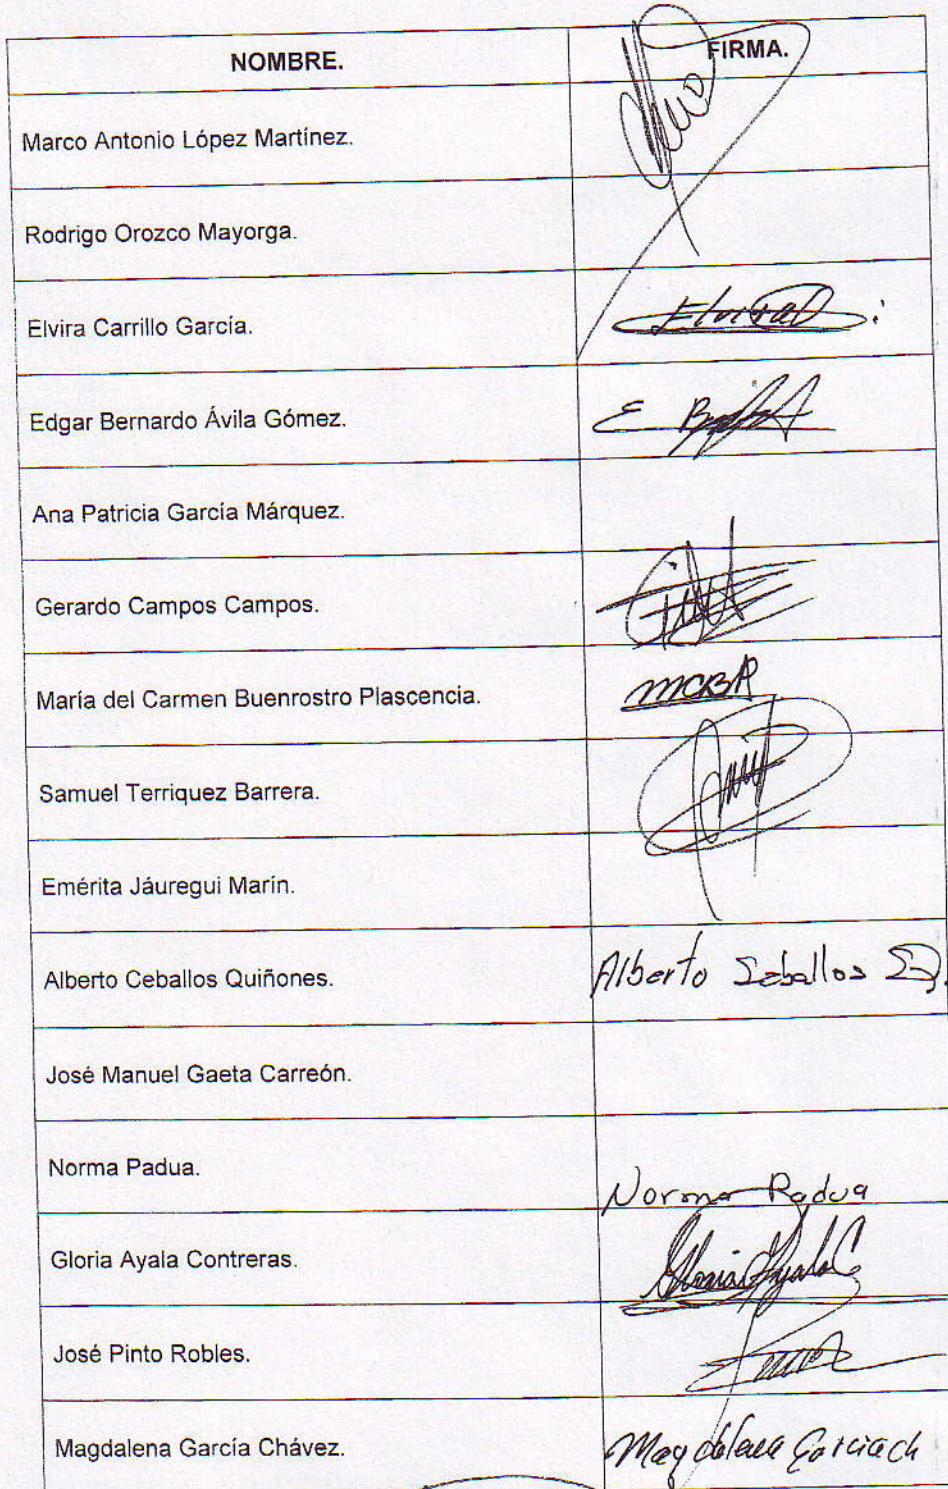 NOMBRE. FIRMA.
Marco Antonio López Martínez.
Rodrigo Orozco Mayorga.
Elvira Carrillo García. Elvira
Edgar Bernardo Ávila Gómez. E
Ana Patricia García Márquez.
Gerardo Campos Campos.
María del Carmen Buenrostro Plascencia. MCBP
Samuel Terriquez Barrera.
Emérita Jáuregui Marín.
Alberto Ceballos Quiñones. Alberto Seballos Q.
José Manuel Gaeta Carreón.
Norma Padua. Norma Padua
Gloria Ayala Contreras. Gloria Ayala C
José Pinto Robles.
Magdalena García Chávez. Magdalena Garcia ch